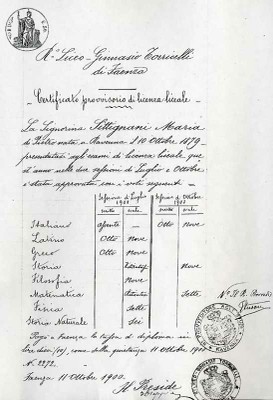 R.o Liceo-Ginnasio Torricelli
di Faenza
Certificato provvisorio di licenza liceale
La Signorina Settignani Maria
di Pietro nata a Ravenna il 10 Ottobre 1879
presentatasi agli esami di licenza liceale que
st'anno nelle due sessioni di Luglio e Ottobre
è stata approvata con i voti seguenti
Sessione di Luglio 1900 Sessione di Ottobre 1900
Italiano Otto Nove
Latino Otto Nove
Greco Otto Nove
Storia Nove
Filosofia Nove
Matematica Sette
Fisica Sette
Storia Naturale Sei
Pagò a Faenza la tassa di diploma in
lire dieci (10), come dalla quietanza 11 Ottobre 1900
N.o 2272.
Faenza 11 Ottobre 1900.
Il Preside